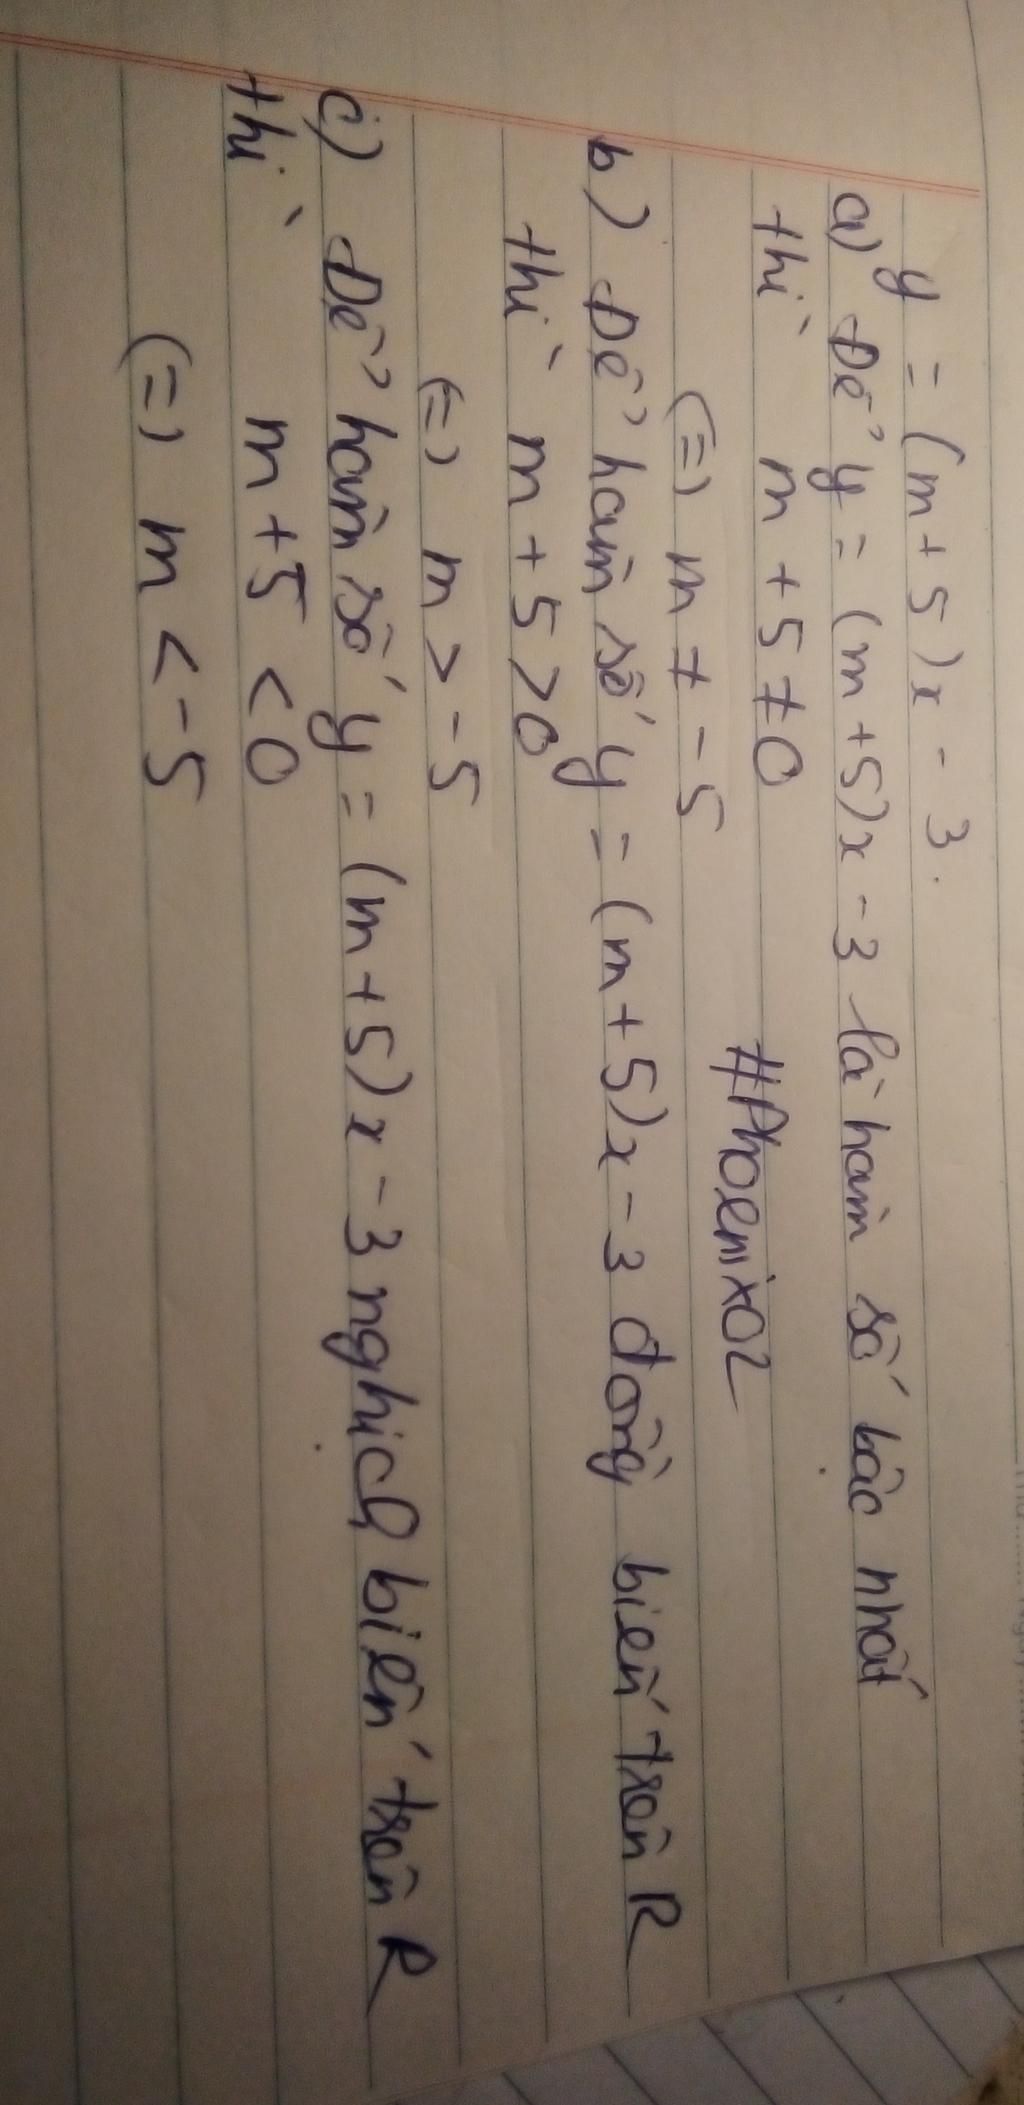 y = (m + 5)x - 3.
a) Để y = (m + 5)x - 3 là hàm số bậc nhất
thì m + 5 ≠ 0
(=) m ≠ -5 #Phoenix02
b) Để hàm số y = (m + 5)x - 3 đồng biến trên R
thì m + 5 > 0
(=) m > -5
c) Để hàm số y = (m + 5)x - 3 nghịch biến trên R
thì m + 5 < 0
(=) m < -5